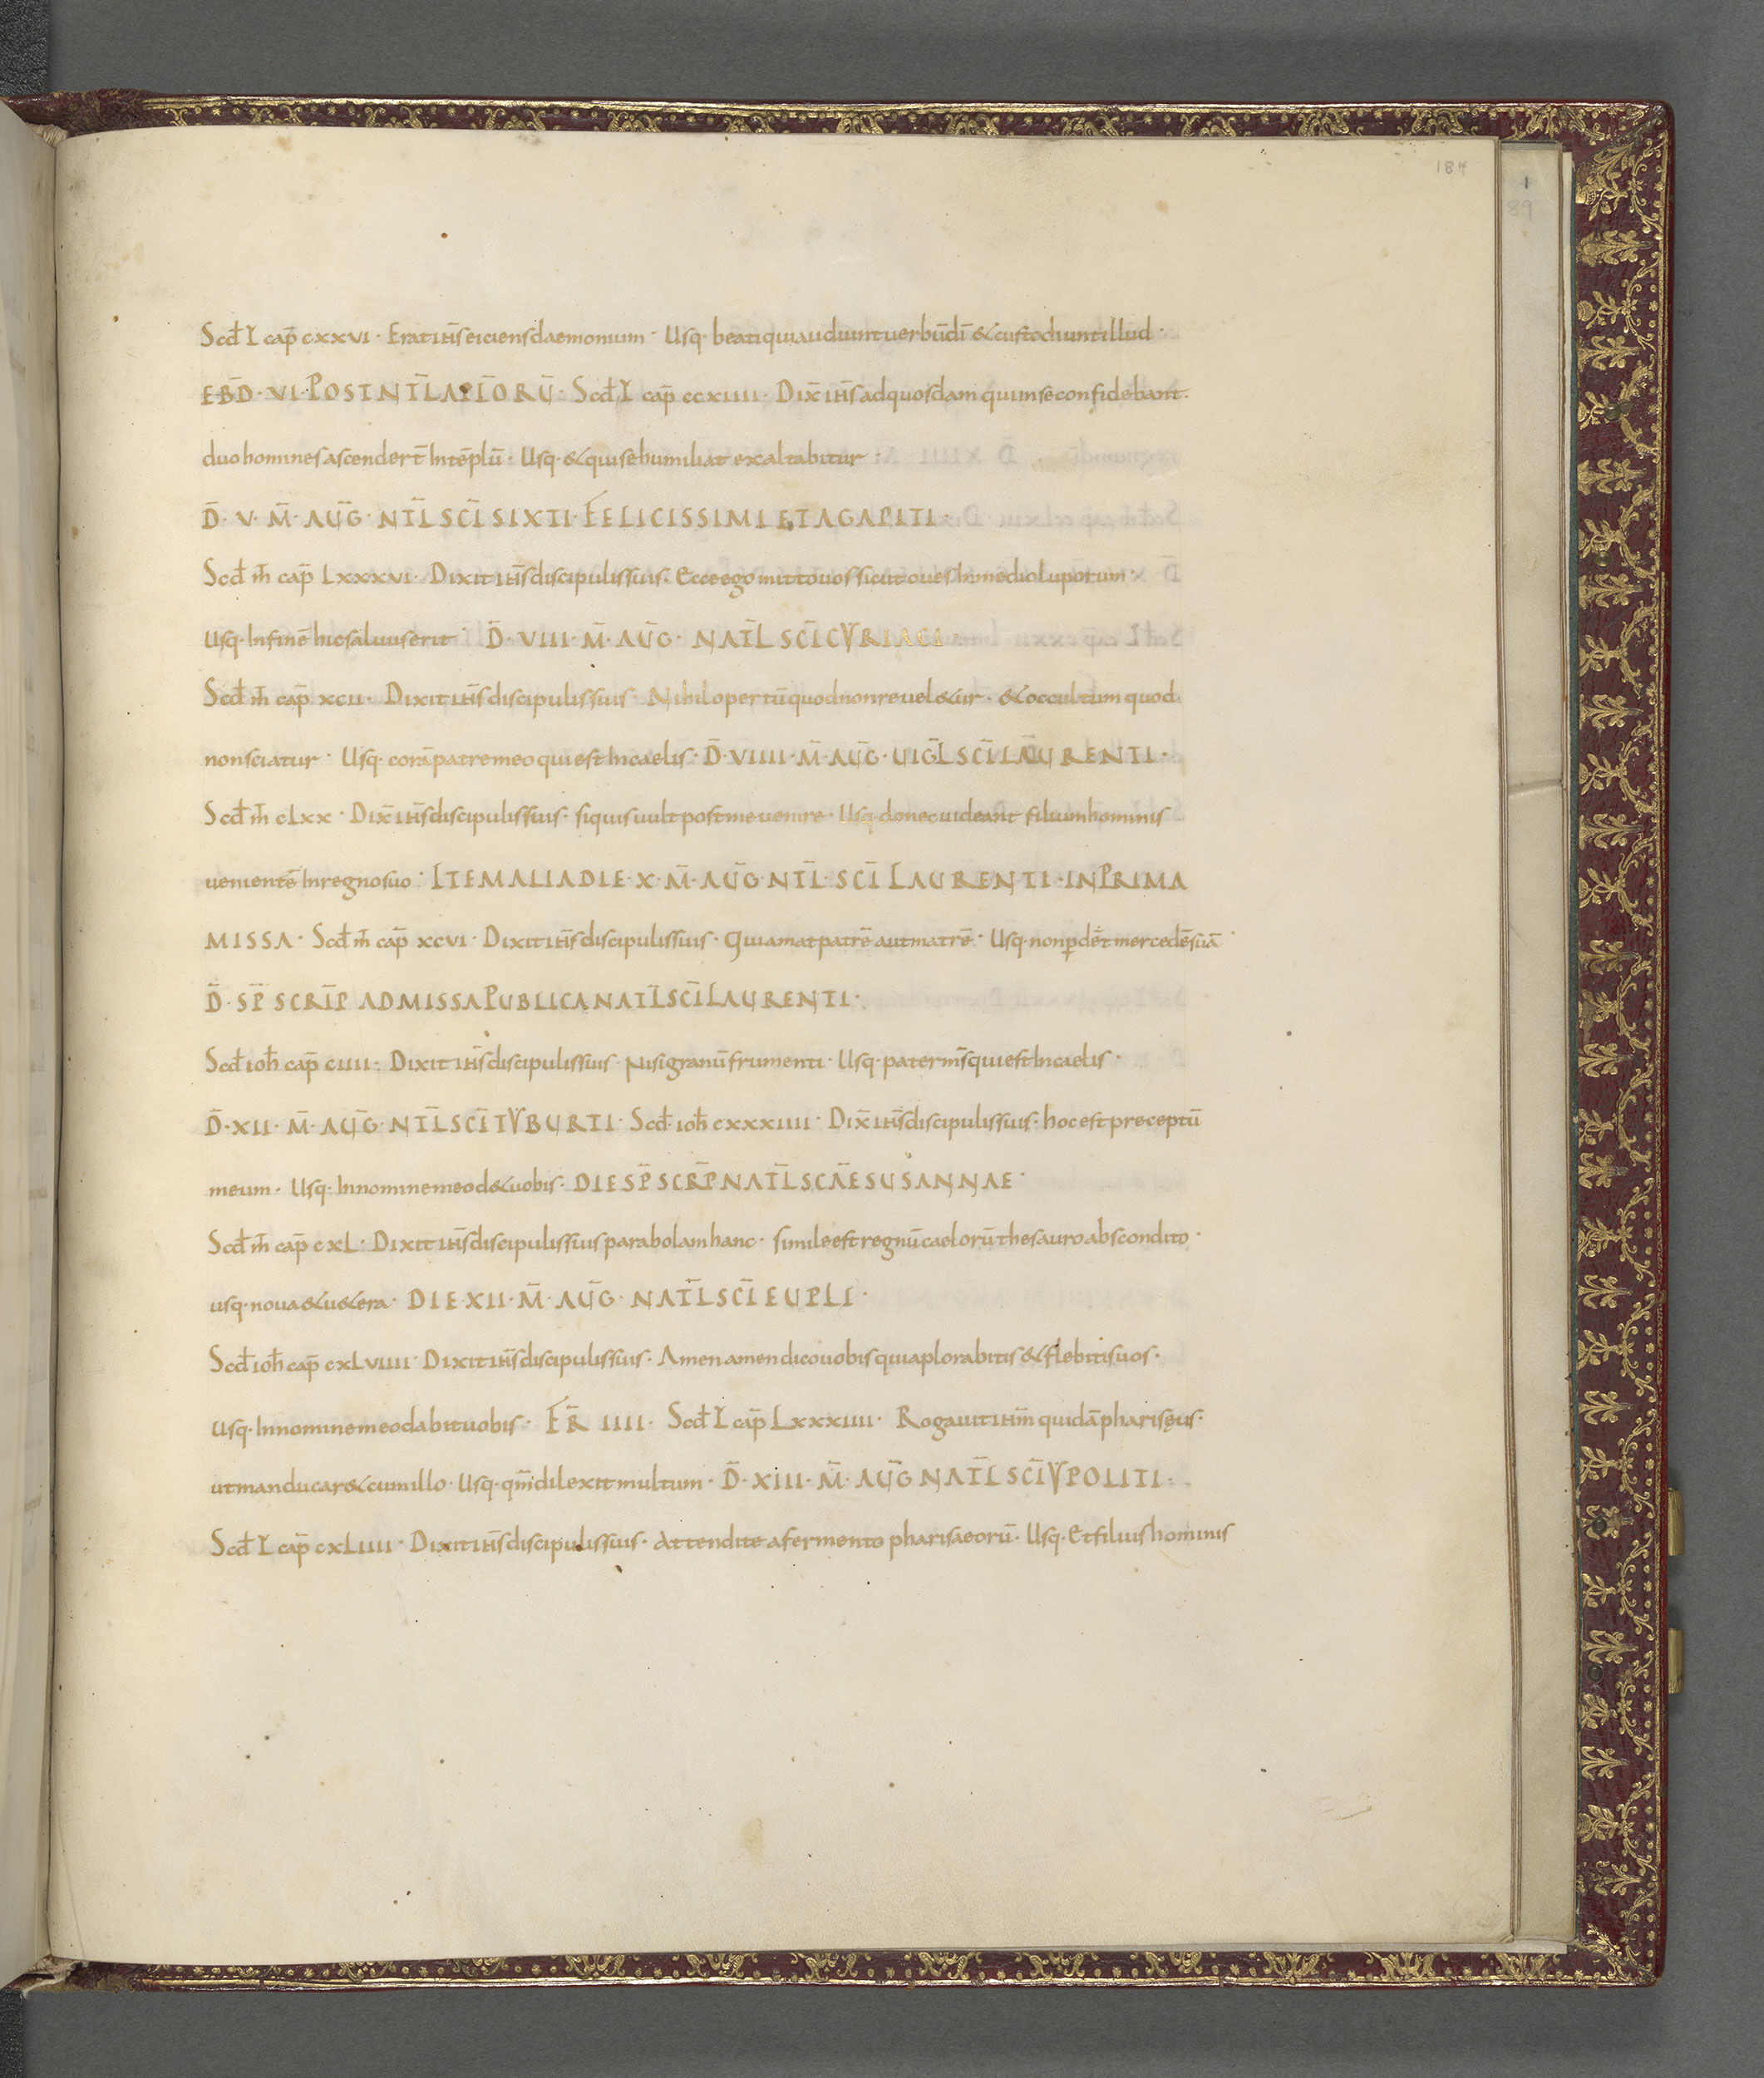 187
1
89
Scd̄ L cap̄ cxxvi · Erat ih̄s eiciens daemonium · Usq· beati qui audiunt uerbū dī & custodiunt illud ·
EB̄D · VI · POST NT̄L APL̄ORŪ · Scd̄ L cap̄ ccxiiii · Dix̄ ih̄s ad quosdam qui in se confidebant ·
duo homines ascender̄t In tēplū · Usq· & qui se humiliat exaltabitur ·
D̄ · V · M̄ · AŪG · NT̄L SCĪ SIXTI · FELICISSIMI ET AGAPITI ·
Scd̄ m̄ cap̄ Lxxxvi · Dixit ih̄s discipulis suis · Ecce ego mitto uos sicut oues In medio luporum ·
Usq· In finē hic saluus erit · D̄ · VIII · M̄ · AŪG · NAT̄L SCĪ CYRIACI ·
Scd̄ m̄ cap̄ xcii · Dixit ih̄s discipulis suis · Nihil opertū quod non reuel&ur · & occultum quod
non sciatur · Usq· corā patre meo qui est In caelis · D̄ · VIIII · M̄ · AŪG · UIGL̄ SCĪ LAURENTI ·
Scd̄ m̄ cLxx · Dix̄ ih̄s discipulis suis · si quis uult post me uenire · Usq· donec uideant filium hominis
uenientē In regno suo · ITEM ALIA DIE · X · M̄ · AŪG · NT̄L · SCĪ LAURENTI · IN PRIMA
MISSA · Scd̄ m̄ cap̄ xcvi · Dixit ih̄s discipulis suis · Qui amat patrē aut matrē · Usq· non ꝑdēt mercedē suā ·
D̄ · SP̄ SCRĪP AD MISSA PUBLICA NAT̄L SCĪ LAURENTI ·
Scd̄ ioh̄ cap̄ ciiii · Dixit ih̄s discipulis suis · Nisi granū frumenti · Usq· pater m̄s qui est In caelis ·
D̄ · XII · M̄ · AŪG · NT̄L SCĪ TYBURTI · Scd̄ · ioh̄ cxxxiiii · Dix̄ ih̄s discipulis suis · hoc est preceptū
meum · Usq· In nomine meo d&uobis · DIE SP̄ SCRP̄ NAT̄L SCĀE SUSANNAE ·
Scd̄ m̄ cap̄ cxL · Dixit ih̄s discipulis suis parabolam hanc · simile est regnū caelorū thesauro abscondito ·
usq· noua & u&era · DIE XII · M̄ · AŪG · NAT̄L SCĪ EUPLI ·
Scd̄ ioh̄ cap̄ cxLviiii · Dixit ih̄s discipulis suis · Amen amen dico uobis quia plorabitis & flebitis uos ·
Usq· In nomine meo dabit uobis · FR̄ IIII · Scd̄ L cap̄ Lxxxiiii · Rogauit ih̄m quidā pharisęus ·
ut manducar& cum illo · Usq· qm̄ dilexit multum · D̄ · XIII · M̄ · AŪG NAT̄L SCĪ YPOLITI ·
Scd̄ L cap̄ cxLiiii · Dixit ih̄s discipulis suis · Attendite a fermento pharisaeorū · Usq· Et filius hominis